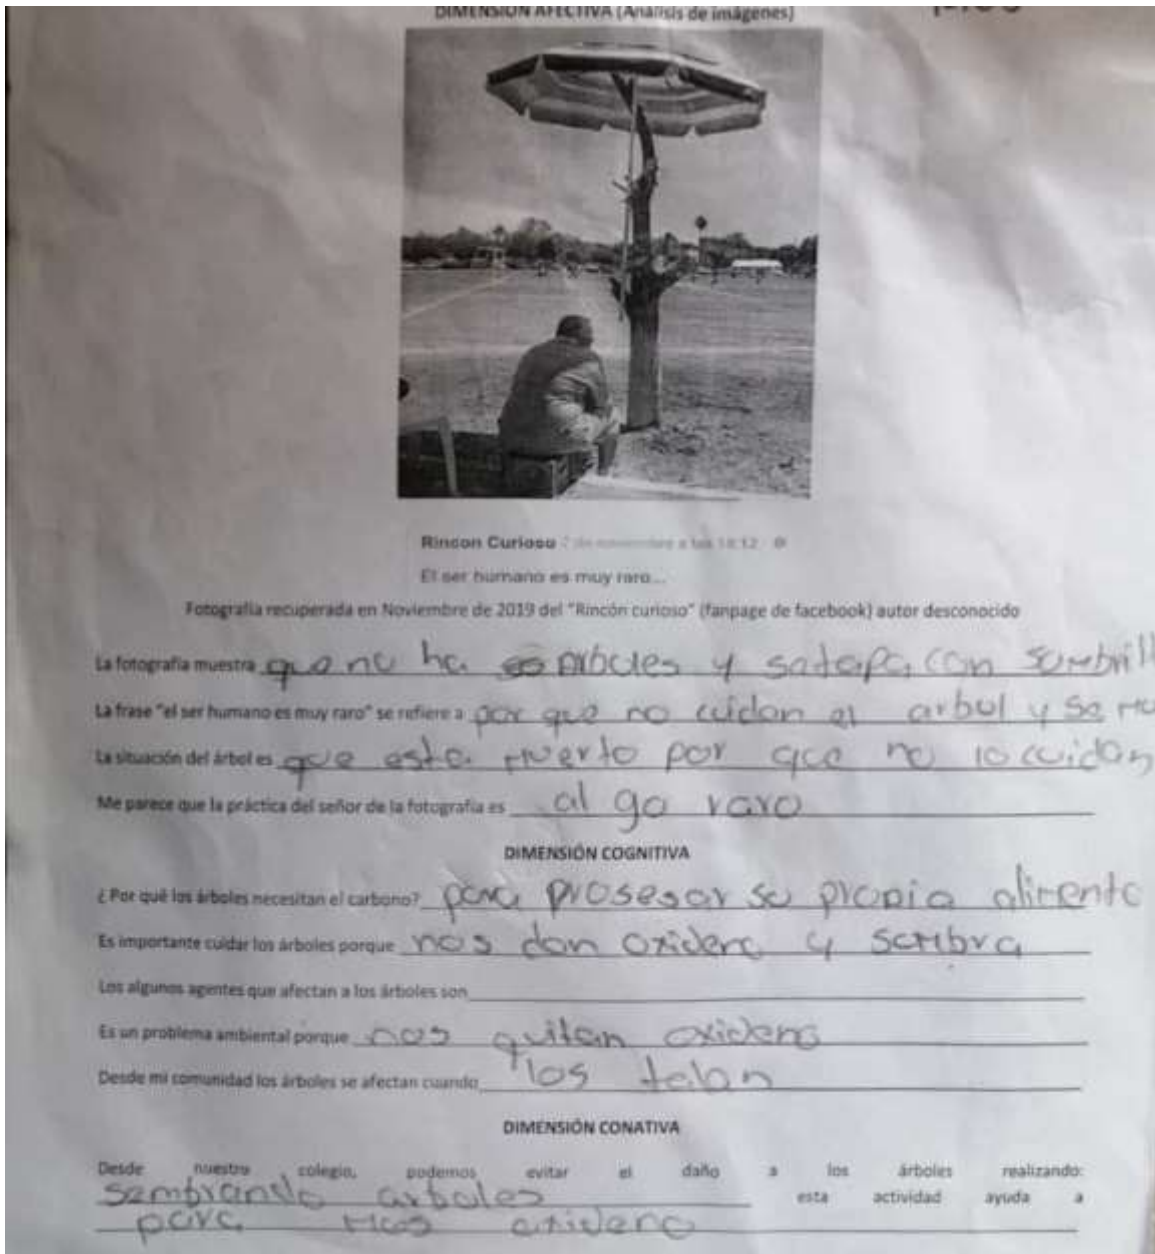 DIMENSIÓN AFECTIVA (Análisis de imágenes)
Rincon Curioso 7 de noviembre a las 18:12
El ser humano es muy raro...
Fotografía recuperada en Noviembre de 2019 del "Rincón curioso" (fanpage de facebook) autor desconocido
La fotografía muestra que no ha arboles y satapa con sombrill
La frase "el ser humano es muy raro" se refiere a por que no cuidan el arbol y se mu
La situación del árbol es que esta muerto por que no lo cuidan
Me parece que la práctica del señor de la fotografía es algo raro
DIMENSIÓN COGNITIVA
¿Por qué los árboles necesitan el carbono? para prosesar su propia alimento
Es importante cuidar los árboles porque nos dan oxideno y sombra
Los algunos agentes que afectan a los árboles son
Es un problema ambiental porque nos quitan oxideno
Desde mi comunidad los árboles se afectan cuando los talan
DIMENSIÓN CONATIVA
Desde nuestro colegio, podemos evitar el daño a los árboles realizando:
sembrando arboles esta actividad ayuda a
para mas oxideno